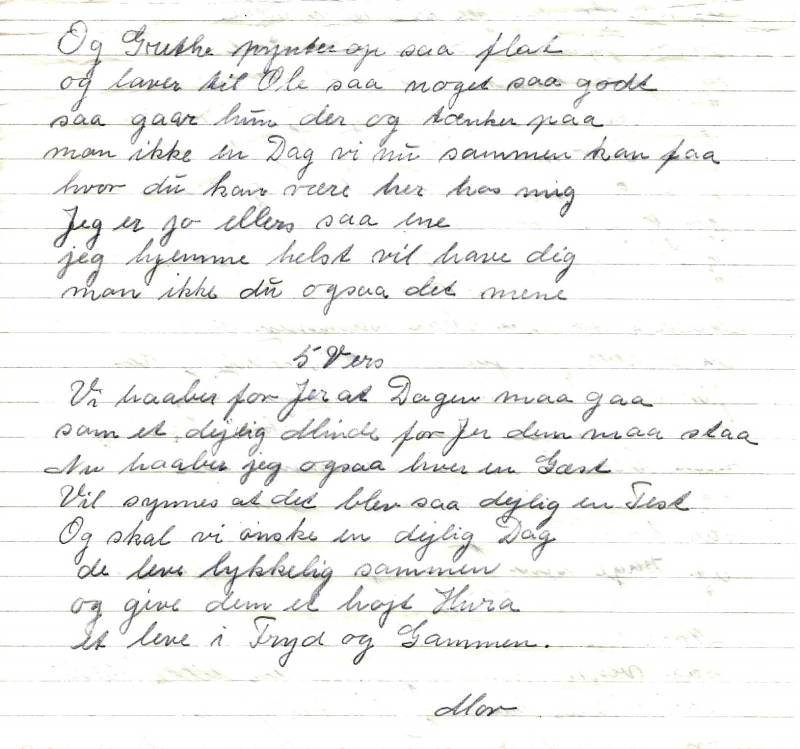 Og Grethe pynter op saa flat
og laver til Ole saa noget saa godt
saa gaar hun der og tænker paa
mon ikke en Dag vi nu sammen kan faa
hvor du kan være her hos mig
Jeg er jo ellers saa ene
jeg hjemme helst vil have dig
mon ikke du ogsaa det mene
5 Vers
Vi haaber for Jer at Dagen maa gaa
som et dejlig Minde for Jer den maa staa
Nu haaber jeg ogsaa hver en Gæst
Vil synnes at det blev saa dejlig en Fest
Og skal vi ønske en dejlig Dag
de leve lykkelig sammen
og give dem et højt Hura
et leve i Fryd og Gammen.
Mor